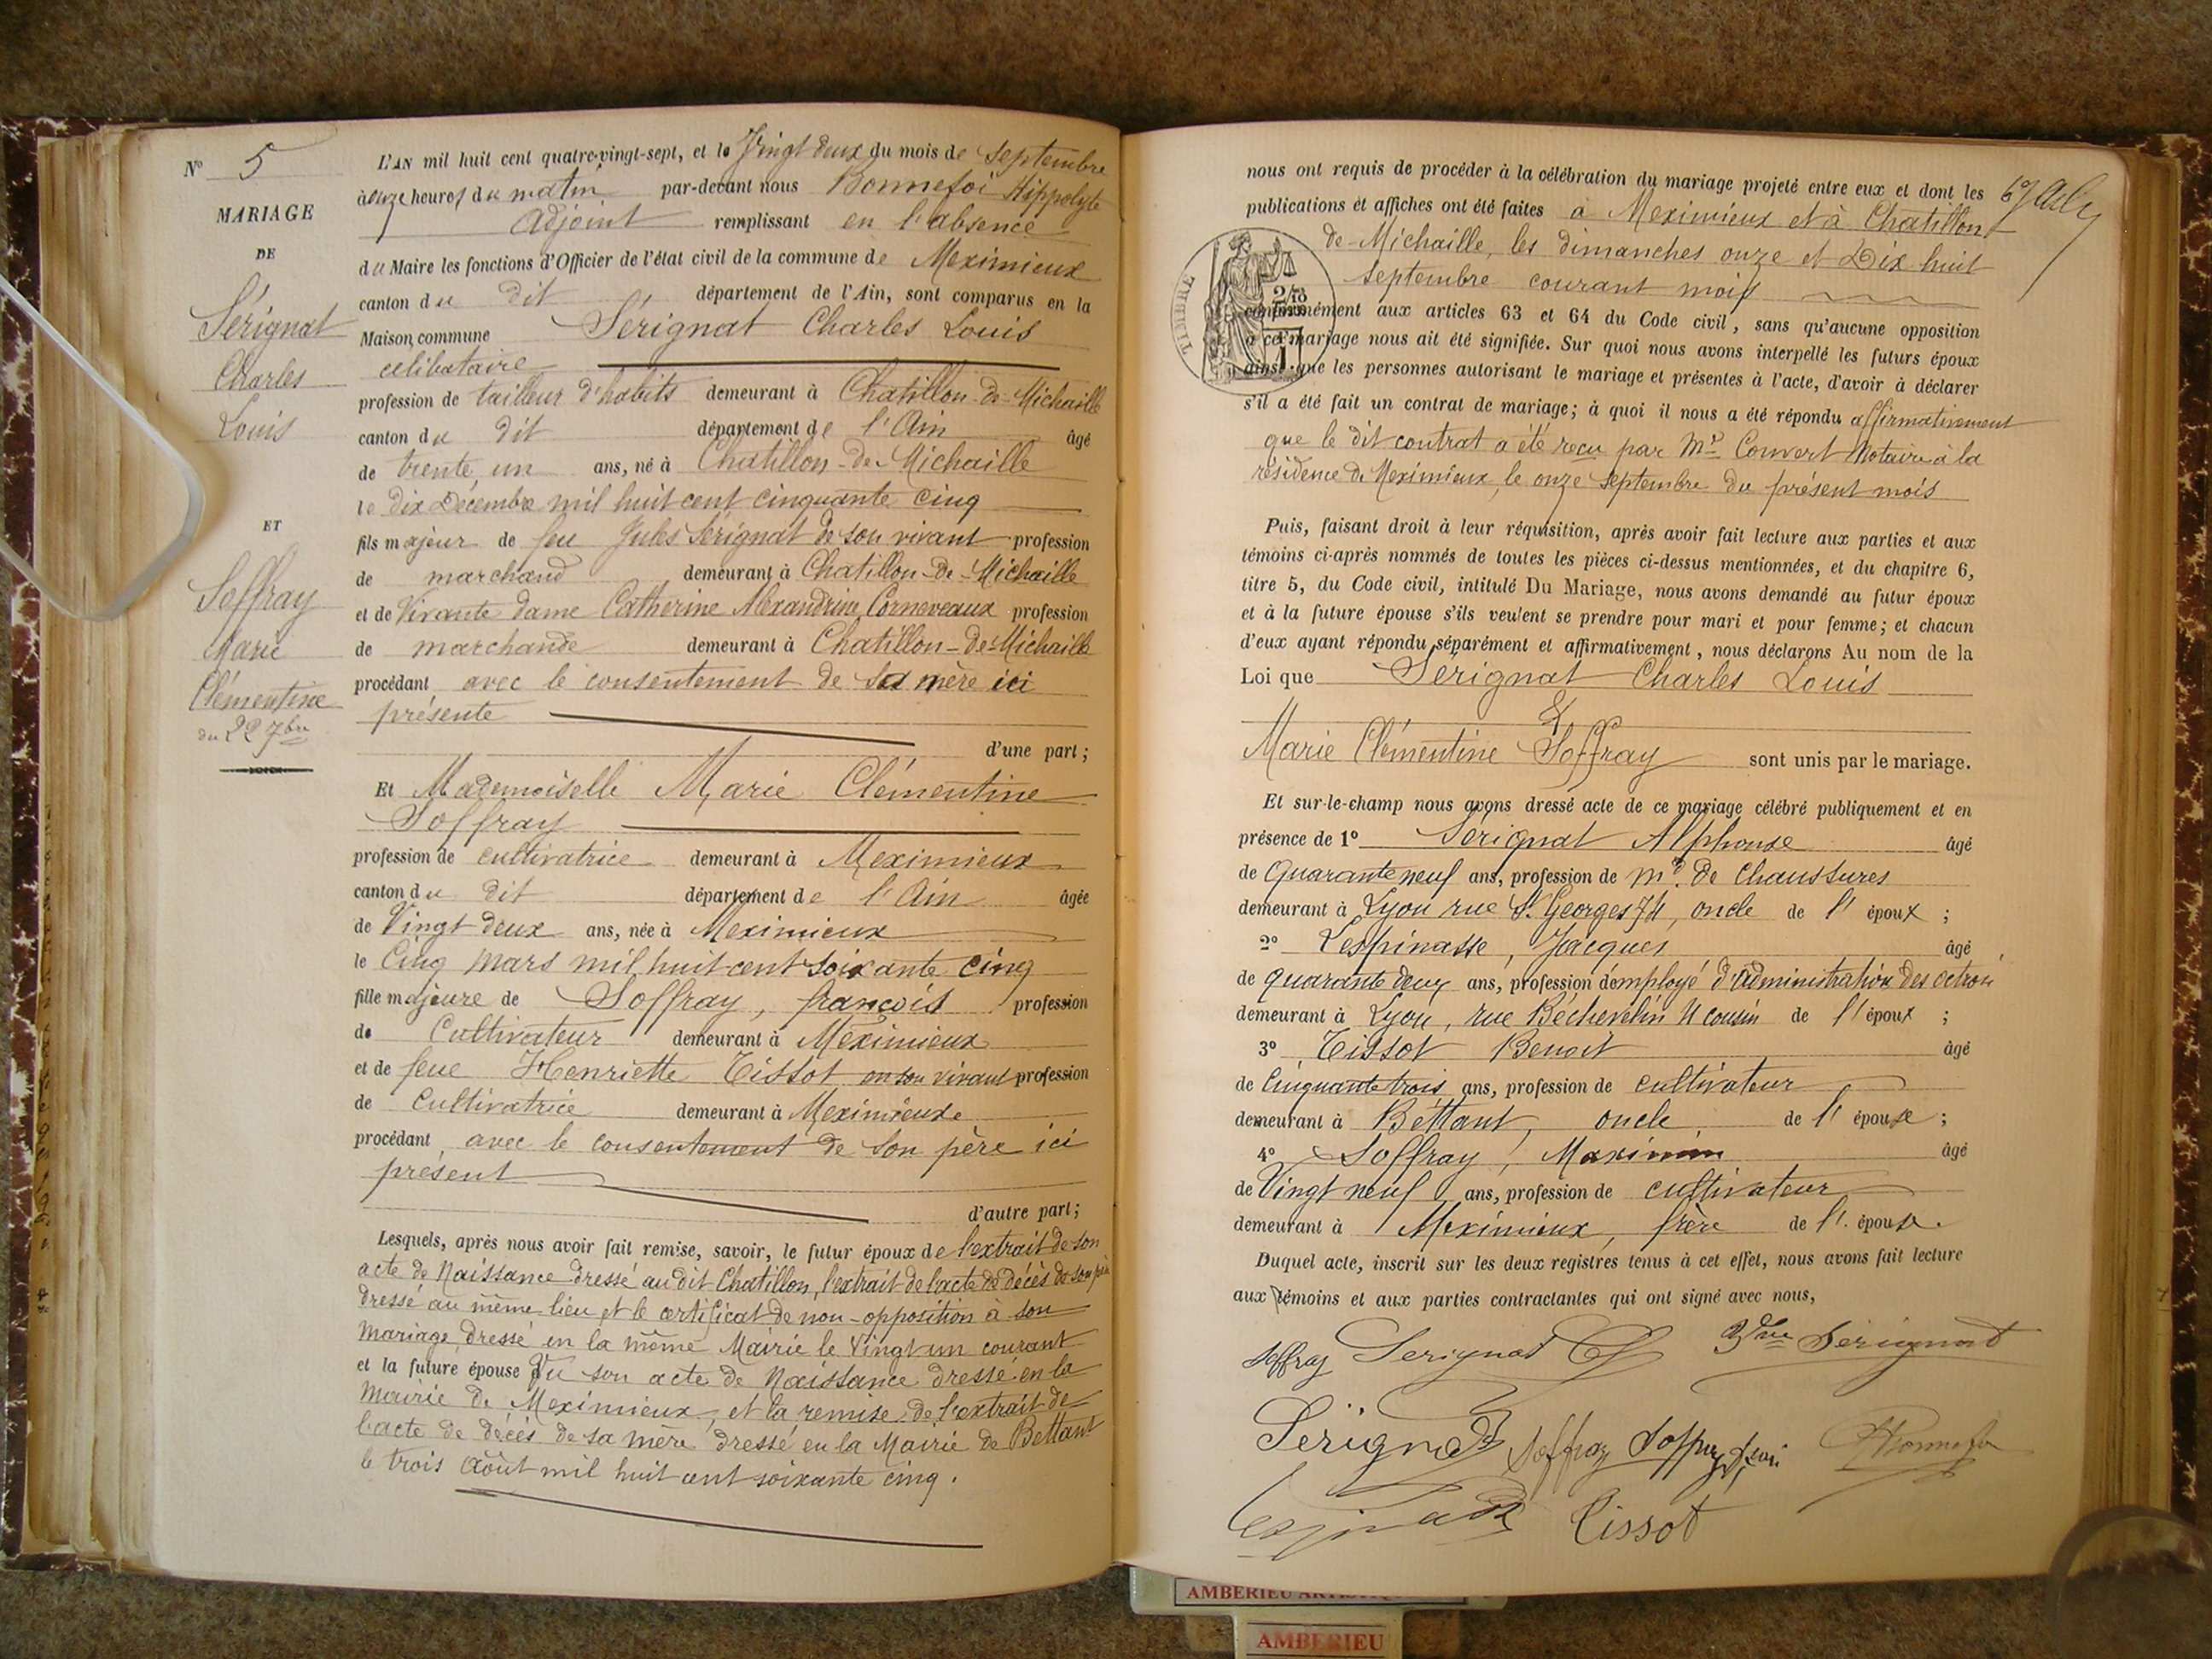 N° 5
MARIAGE
DE
Sérignat
Charles
Louis
ET
Soffray
Marie
Clémentine
du 22 7bre
L'AN mil huit cent quatre-vingt-sept, et le Vingt deux du mois de Septembre
à onze heures du matin par-devant nous Bonnefoi Hippolyte
Adjoint remplissant en l'absence
du Maire les fonctions d'Officier de l'état civil de la commune de Meximieux
canton du dit département de l'Ain, sont comparus en la
Maison commune Sérignat Charles Louis
célibataire
profession de tailleur d'habits demeurant à Chatillon-de-Michaille
canton du dit département de l'Ain âgé
de trente un ans, né à Chatillon-de-Michaille
le dix Décembre mil huit cent cinquante cinq
fils majeur de feu Jules Sérignat de son vivant profession
de marchand demeurant à Chatillon-de-Michaille
et de Vivante dame Catherine Alexandrine Corneveaux profession
de marchande demeurant à Chatillon-de-Michaille
procédant avec le consentement de sa mère ici
présente
d'une part;
Et Mademoiselle Marie Clémentine
Soffray
profession de cultivatrice demeurant à Meximieux
canton du dit département de l'Ain âgée
de Vingt deux ans, née à Meximieux
le Cinq mars mil huit cent soixante cinq
fille majeure de Soffray, françois profession
de Cultivateur demeurant à Meximieux
et de feue Henriette Tissot en son vivant profession
de Cultivatrice demeurant à Meximieux
procédant avec le consentement de son père ici
présent
d'autre part;
Lesquels, après nous avoir fait remise, savoir, le futur époux de l'extrait de son
acte de Naissance dressé au dit Chatillon, l'extrait de l'acte de décès de son père
dressé au même lieu et le certificat de non-opposition à son
mariage dressé en la même Mairie le Vingt un courant
et la future épouse Vu son acte de Naissance dressé en la
mairie de Meximieux, et la remise de l'extrait de
l'acte de décès de sa mère dressé en la Mairie de Bettant
le trois août mil huit cent soixante cinq.
nous ont requis de procéder à la célébration du mariage projeté entre eux et dont les
publications et affiches ont été faites à Meximieux et à Chatillon
de-Michaille, les dimanches onze et Dix huit
septembre courant mois
TIMBRE
conformément aux articles 63 et 64 du Code civil, sans qu'aucune opposition
à ce mariage nous ait été signifiée. Sur quoi nous avons interpellé les futurs époux
ainsi que les personnes autorisant le mariage et présentes à l'acte, d'avoir à déclarer
s'il a été fait un contrat de mariage; à quoi il nous a été répondu affirmativement
que le dit contrat a été reçu par Me Convert Notaire à la
résidence de Meximieux, le onze Septembre du présent mois
Puis, faisant droit à leur réquisition, après avoir fait lecture aux parties et aux
témoins ci-après nommés de toutes les pièces ci-dessus mentionnées, et du chapitre 6,
titre 5, du Code civil, intitulé Du Mariage, nous avons demandé au futur époux
et à la future épouse s'ils veulent se prendre pour mari et pour femme; et chacun
d'eux ayant répondu séparément et affirmativement, nous déclarons Au nom de la
Loi que Sérignat Charles Louis
Et
Marie Clémentine Soffray sont unis par le mariage.
Et sur-le-champ nous avons dressé acte de ce mariage célébré publiquement et en
présence de 1° Sérignat Alphonse âgé
de Quarante neuf ans, profession de Md. de Chaussures
demeurant à Lyon rue St. Georges 74, oncle de l'époux;
2° Lespinasse, Jacques âgé
de quarante deux ans, profession d'employé d'administration des octroi
demeurant à Lyon, rue Béchevelin 4 cousin de l'époux;
3° Tissot Benoit âgé
de Cinquante trois ans, profession de cultivateur
demeurant à Bettant, oncle de l'épouse;
4° Soffray, Maximin âgé
de Vingt neuf ans, profession de cultivateur
demeurant à Meximieux, frère de l'épouse.
Duquel acte, inscrit sur les deux registres tenus à cet effet, nous avons fait lecture
aux témoins et aux parties contractantes qui ont signé avec nous,
Soffray Serignat Vve Sérignat
Sérignat Soffray Soffray
Tissot
AMBERIEU
AMBERIEU